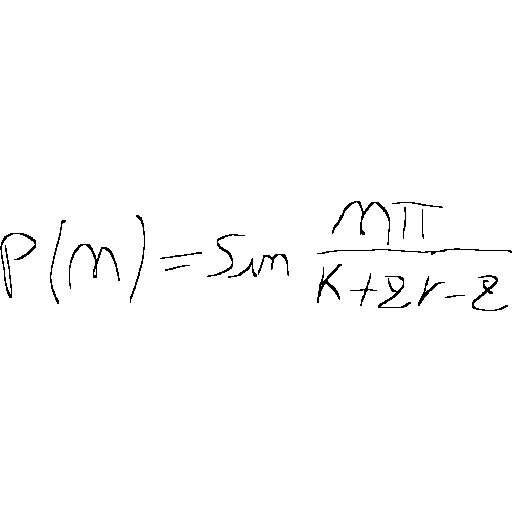 P(m) = sin \frac{m\pi}{k+2r-2}